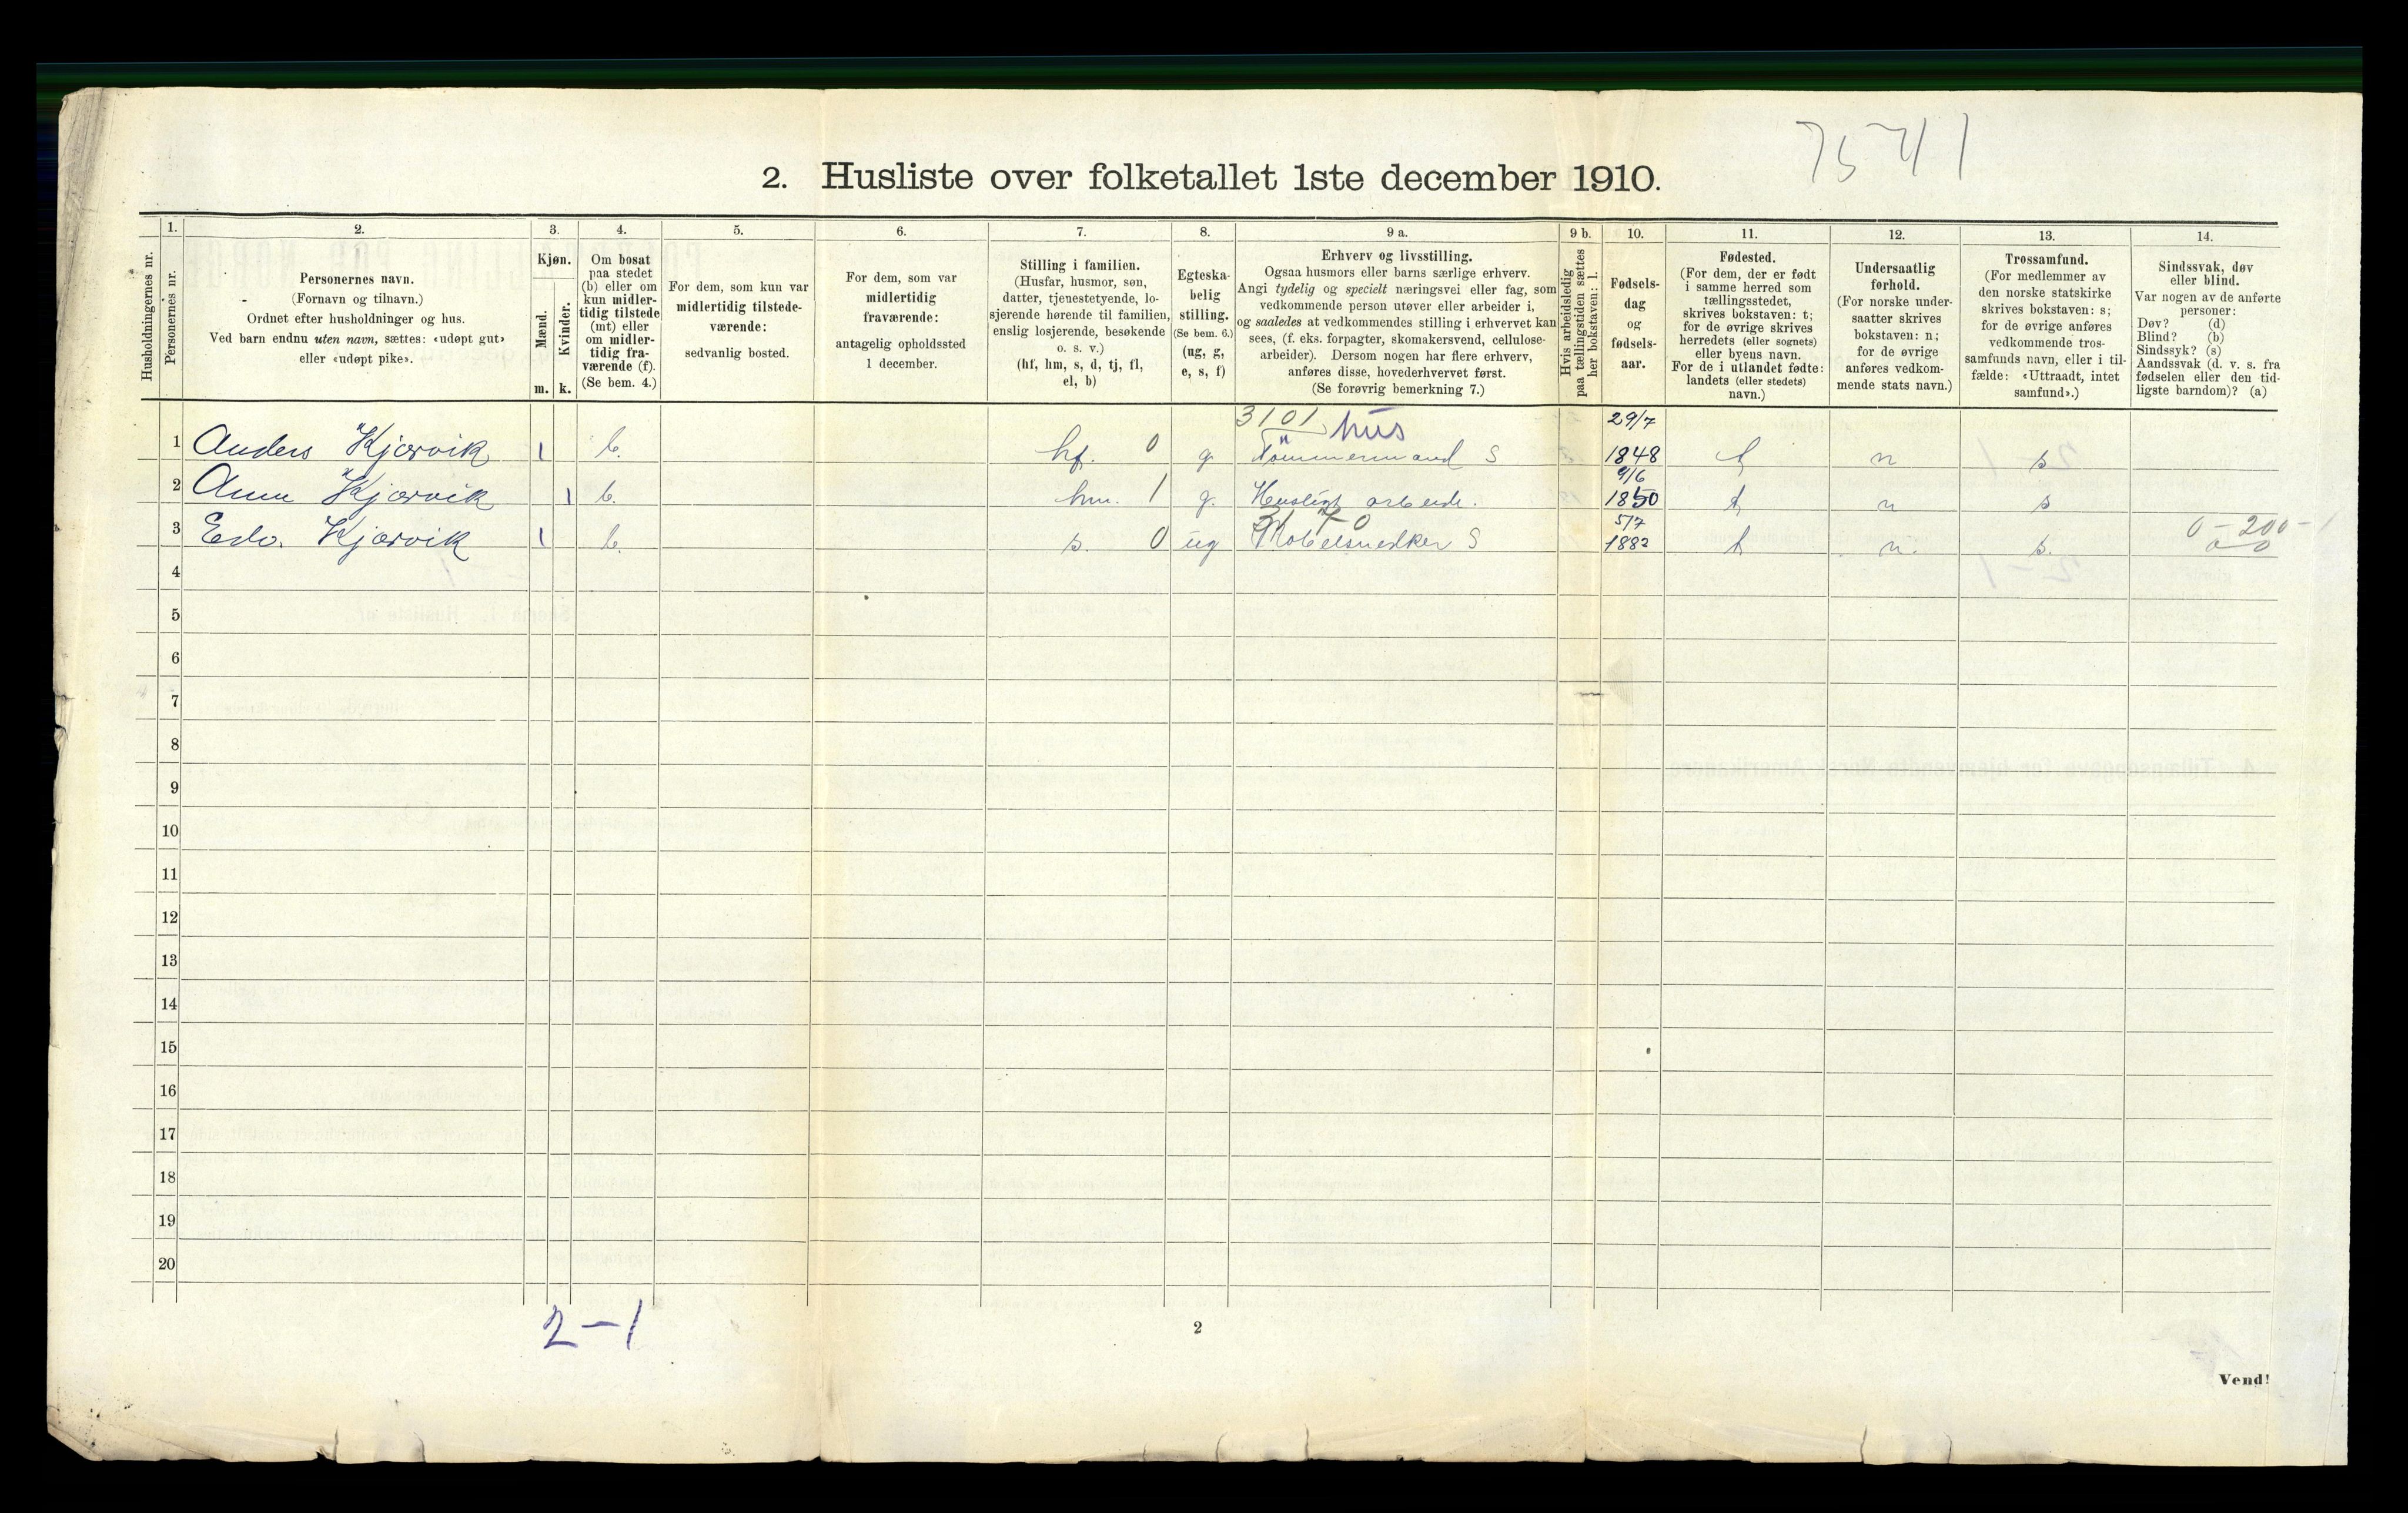 7541
2. Husliste over folketallet 1ste december 1910.
Husholdningernes nr.
1.
Personernes nr.
2.
Personernes navn.
(Fornavn og tilnavn.)
Ordnet efter husholdninger og hus.
Ved barn endnu uten navn, sættes: «udøpt gut»
eller «udøpt pike».
3.
Kjøn.
Mænd.
m.
Kvinder.
k.
4.
Om bosat
paa stedet
(b) eller om
kun midler-
tidig tilstede
(mt) eller
om midler-
tidig fra-
værende (f).
(Se bem. 4.)
5.
For dem, som kun var
midlertidig tilstede-
værende:
sedvanlig bosted.
6.
For dem, som var
midlertidig
fraværende:
antagelig opholdssted
1 december.
7.
Stilling i familien.
(Husfar, husmor, søn,
datter, tjenestetyende, lo-
sjerende hørende til familien,
enslig losjerende, besøkende
o. s. v.)
(hf, hm, s, d, tj, fl,
el, b)
8.
Egteska-
belig
stilling.
(Se bem. 6.)
(ug, g,
e, s, f)
9 a.
Erhverv og livsstilling.
Ogsaa husmors eller barns særlige erhverv.
Angi tydelig og specielt næringsvei eller fag, som
vedkommende person utøver eller arbeider i,
og saaledes at vedkommendes stilling i erhvervet kan
sees, (f. eks. forpagter, skomakersvend, cellulose-
arbeider). Dersom nogen har flere erhverv,
anføres disse, hovederhvervet først.
(Se forøvrig bemerkning 7.)
9 b.
Hvis arbeidsledig
paa tællingstiden sættes
her bokstaven: l.
10.
Fødsels-
dag
og
fødsels-
aar.
11.
Fødested.
(For dem, der er født
i samme herred som
tællingsstedet,
skrives bokstaven: t;
for de øvrige skrives
herredets (eller sognets)
eller byens navn.
For de i utlandet fødte:
landets (eller stedets)
navn.)
12.
Undersaatlig
forhold.
(For norske under-
saatter skrives
bokstaven: n;
for de øvrige
anføres vedkom-
mende stats navn.)
13.
Trossamfund.
(For medlemmer av
den norske statskirke
skrives bokstaven: s;
for de øvrige anføres
vedkommende tros-
samfunds navn, eller i til-
fælde: «Uttraadt, intet
samfund».)
14.
Sindssvak, døv
eller blind.
Var nogen av de anførte
personer:
Døv? (d)
Blind? (b)
Sindssyk? (s)
Aandssvak (d. v. s. fra
fødselen eller den tid-
ligste barndom)? (a)
3101 hus 29/7
1 Anders Kjærvik 1 b. hf. 0 g. Tömmermand S 1848 t n s
9/6
2 Ann Kjærvik 1 b. hm. 1 g. Husligt arbeide. 1850 t n s
5/7 0-200-1
3 Edv. Kjærvik 1 b. s. 0 ug Møbelsnedker S 1882 t n. s. 0 0
4
5
6
7
8
9
10
11
12
13
14
15
16
17
18
19
20
2-1
2
Vend!